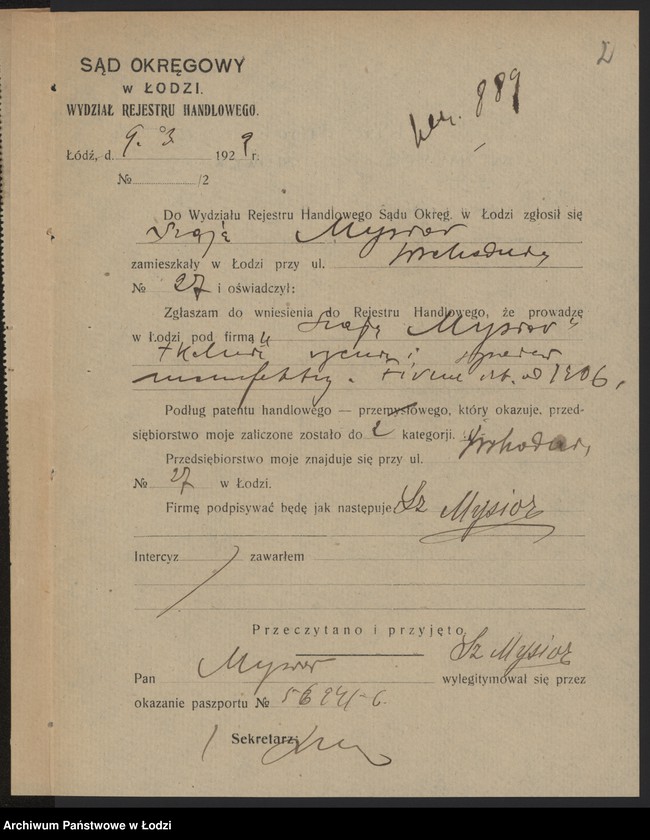 2
SĄD OKRĘGOWY
w ŁODZI.
WYDZIAŁ REJESTRU HANDLOWEGO.
889
Łódź, d. 9. 3 1929 r.
№ /2
Do Wydziału Rejestru Handlowego Sądu Okręg. w Łodzi zgłosił się
Szaja Mysior
zamieszkały w Łodzi przy ul. Wschodniej
№ 27 i oświadczył:
Zgłaszam do wniesienia do Rejestru Handlowego, że prowadzę
w Łodzi pod firmą „Szaja Mysior"
i
od 1906.
Podług patentu handlowego — przemysłowego, który okazuje, przed-
siębiorstwo moje zaliczone zostało do 2 kategorji.
Przedsiębiorstwo moje znajduje się przy ul. Wschodniej
№ 27 w Łodzi.
Firmę podpisywać będę jak następuje: Sz Mysior
Intercyz zawarłem
Przeczytano i przyjęto
Sz Mysior
Pan Mysior wylegitymował się przez
okazanie paszportu №
Sekretarz:
Archiwum Państwowe w Łodzi